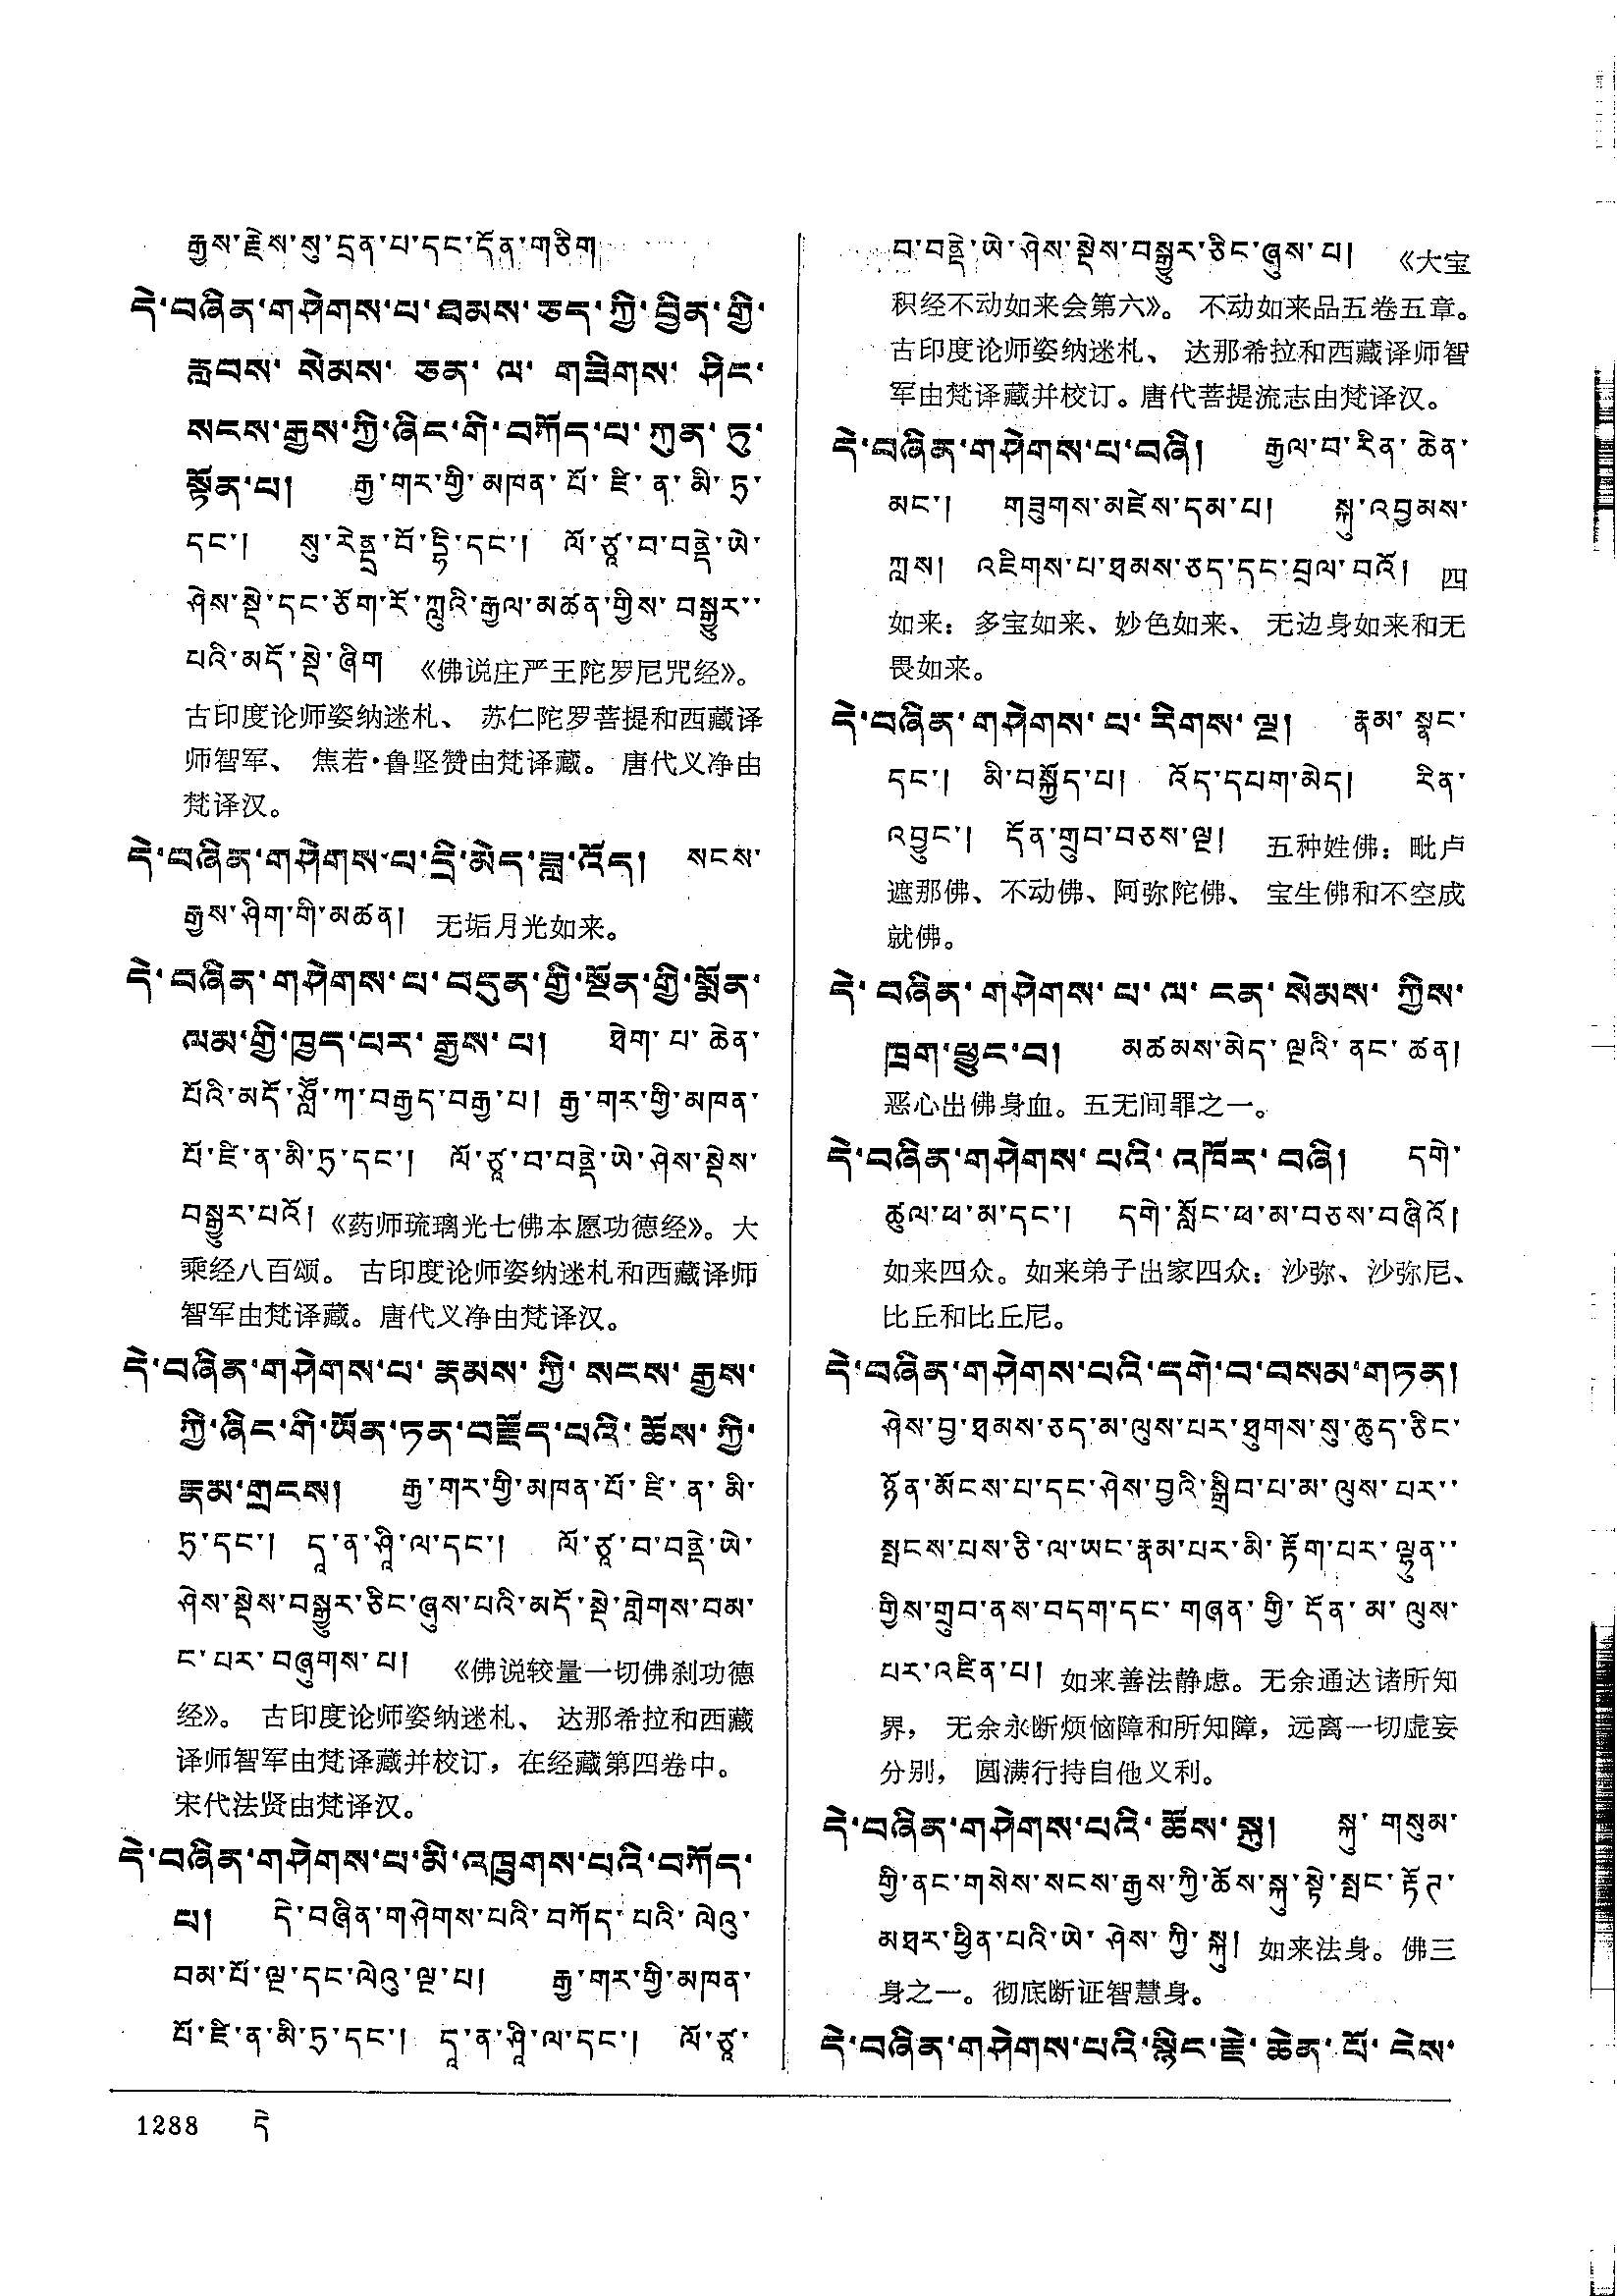 རྒྱས་རྗེས་སུ་དྲན་པ་དང་དོན་གཅིག
དེ་བཞིན་གཤེགས་པ་ཐམས་ཅད་ཀྱི་བྱིན་གྱི་
རླབས་ སེམས་ ཅན་ ལ་ གཟིགས་ ཤིང་
སངས་རྒྱས་ཀྱི་ཞིང་གི་བཀོད་པ་ཀུན་ཏུ་
སྟོན་པ། རྒྱ་གར་གྱི་མཁན་པོ་ཛི་ན་མི་ཏྲ་
དང་། སུ་རེནྡྲ་བོ་དྷི་དང་། ལོ་ཙཱ་བ་བནྡེ་ཡེ་
ཤེས་སྡེ་དང་ཅོག་རོ་ཀླུའི་རྒྱལ་མཚན་གྱིས་བསྒྱུར་་
པའི་མདོ་སྡེ་ཞིག 《佛说庄严王陀罗尼咒经》。
古印度论师姿纳迷札、 苏仁陀罗菩提和西藏译
师智军、 焦若·鲁坚赞由梵译藏。 唐代义净由
梵译汉。
དེ་བཞིན་གཤེགས་པ་དྲི་མེད་ཟླ་འོད། སངས་
རྒྱས་ཤིག་གི་མཚན། 无垢月光如来。
དེ་བཞིན་གཤེགས་པ་བདུན་གྱི་སྔོན་གྱི་སྨོན་
ལམ་གྱི་ཁྱད་པར་རྒྱས་པ། ཐེག་པ་ཆེན་
པོའི་མདོ་ཤློ་ཀ་བརྒྱད་བརྒྱ་པ། རྒྱ་གར་གྱི་མཁན་
པོ་ཛི་ན་མི་ཏྲ་དང་། ལོ་ཙཱ་བ་བནྡེ་ཡེ་ཤེས་སྡེས་
བསྒྱུར་པའོ། 《药师琉璃光七佛本愿功德经》。大
乘经八百颂。 古印度论师姿纳迷札和西藏译师
智军由梵译藏。唐代义净由梵译汉。
དེ་བཞིན་གཤེགས་པ་རྣམས་ཀྱི་སངས་རྒྱས་
ཀྱི་ཞིང་གི་ཡོན་ཏན་བརྗོད་པའི་ཆོས་ཀྱི་
རྣམ་གྲངས། རྒྱ་གར་གྱི་མཁན་པོ་ཛི་ན་མི་
ཏྲ་དང་། དཱ་ན་ཤཱི་ལ་དང་། ལོ་ཙཱ་བ་བནྡེ་ཡེ་
ཤེས་སྡེས་བསྒྱུར་ཅིང་ཞུས་པའི་མདོ་སྡེ་གླེགས་བམ་
ང་པར་བཞུགས་པ། 《佛说较量一切佛刹功德
经》。 古印度论师姿纳迷札、 达那希拉和西藏
译师智军由梵译藏并校订，在经藏第四卷中。
宋代法贤由梵译汉。
དེ་བཞིན་གཤེགས་པ་མི་འཁྲུགས་པའི་བཀོད་
པ། དེ་བཞིན་གཤེགས་པའི་བཀོད་པའི་ལེའུ་
བམ་པོ་ལྔ་དང་ལེའུ་ལྔ་པ། རྒྱ་གར་གྱི་མཁན་
པོ་ཛི་ན་མི་ཏྲ་དང་། དཱ་ན་ཤཱི་ལ་དང་། ལོ་ཙཱ་
བ་བནྡེ་ཡེ་ཤེས་སྡེས་བསྒྱུར་ཅིང་ཞུས་པ། 《大宝
积经不动如来会第六》。 不动如来品五卷五章。
古印度论师姿纳迷札、 达那希拉和西藏译师智
军由梵译藏并校订。唐代菩提流志由梵译汉。
དེ་བཞིན་གཤེགས་པ་བཞི། རྒྱལ་བ་རིན་ཆེན་
མང་། གཟུགས་མཛེས་དམ་པ། སྐུ་འབྱམས་
ཀླས། འཇིགས་པ་ཐམས་ཅད་དང་བྲལ་བའོ། 四
如来：多宝如来、妙色如来、 无边身如来和无
畏如来。
དེ་བཞིན་གཤེགས་པ་རིགས་ལྔ། རྣམ་སྣང་
དང་། མི་བསྐྱོད་པ། འོད་དཔག་མེད། རིན་
འབྱུང་། དོན་གྲུབ་བཅས་ལྔ། 五种姓佛：毗卢
遮那佛、不动佛、阿弥陀佛、 宝生佛和不空成
就佛。
དེ་བཞིན་གཤེགས་པ་ལ་ངན་སེམས་ཀྱིས་
ཁྲག་ཕྱུང་བ། མཚམས་མེད་ལྔའི་ནང་ཚན།
恶心出佛身血。五无间罪之一。
དེ་བཞིན་གཤེགས་པའི་འཁོར་བཞི། དགེ་
ཚུལ་ཕ་མ་དང་། དགེ་སློང་ཕ་མ་བཅས་བཞིའོ།
如来四众。如来弟子出家四众：沙弥、沙弥尼、
比丘和比丘尼。
དེ་བཞིན་གཤེགས་པའི་དགེ་བ་བསམ་གཏན།
ཤེས་བྱ་ཐམས་ཅད་མ་ལུས་པར་ཐུགས་སུ་ཆུད་ཅིང་
ཉོན་མོངས་པ་དང་ཤེས་བྱའི་སྒྲིབ་པ་མ་ལུས་པར་་
སྤངས་པས་ཅི་ལ་ཡང་རྣམ་པར་མི་རྟོག་པར་ལྷུན་་
གྱིས་གྲུབ་ནས་བདག་དང་གཞན་གྱི་དོན་མ་ལུས་
པར་འཛིན་པ། 如来善法静虑。无余通达诸所知
界， 无余永断烦恼障和所知障，远离一切虚妄
分别， 圆满行持自他义利。
དེ་བཞིན་གཤེགས་པའི་ཆོས་སྐུ། སྐུ་གསུམ་
གྱི་ནང་གསེས་སངས་རྒྱས་ཀྱི་ཆོས་སྐུ་སྟེ་སྤང་རྟོཊ་
མཐར་ཕྱིན་པའི་ཡེ་ཤེས་ཀྱི་སྐུ། 如来法身。佛三
身之一。彻底断证智慧身。
དེ་བཞིན་གཤེགས་པའི་སྙིང་རྗེ་ཆེན་པོ་ངེས་
1288 དེ